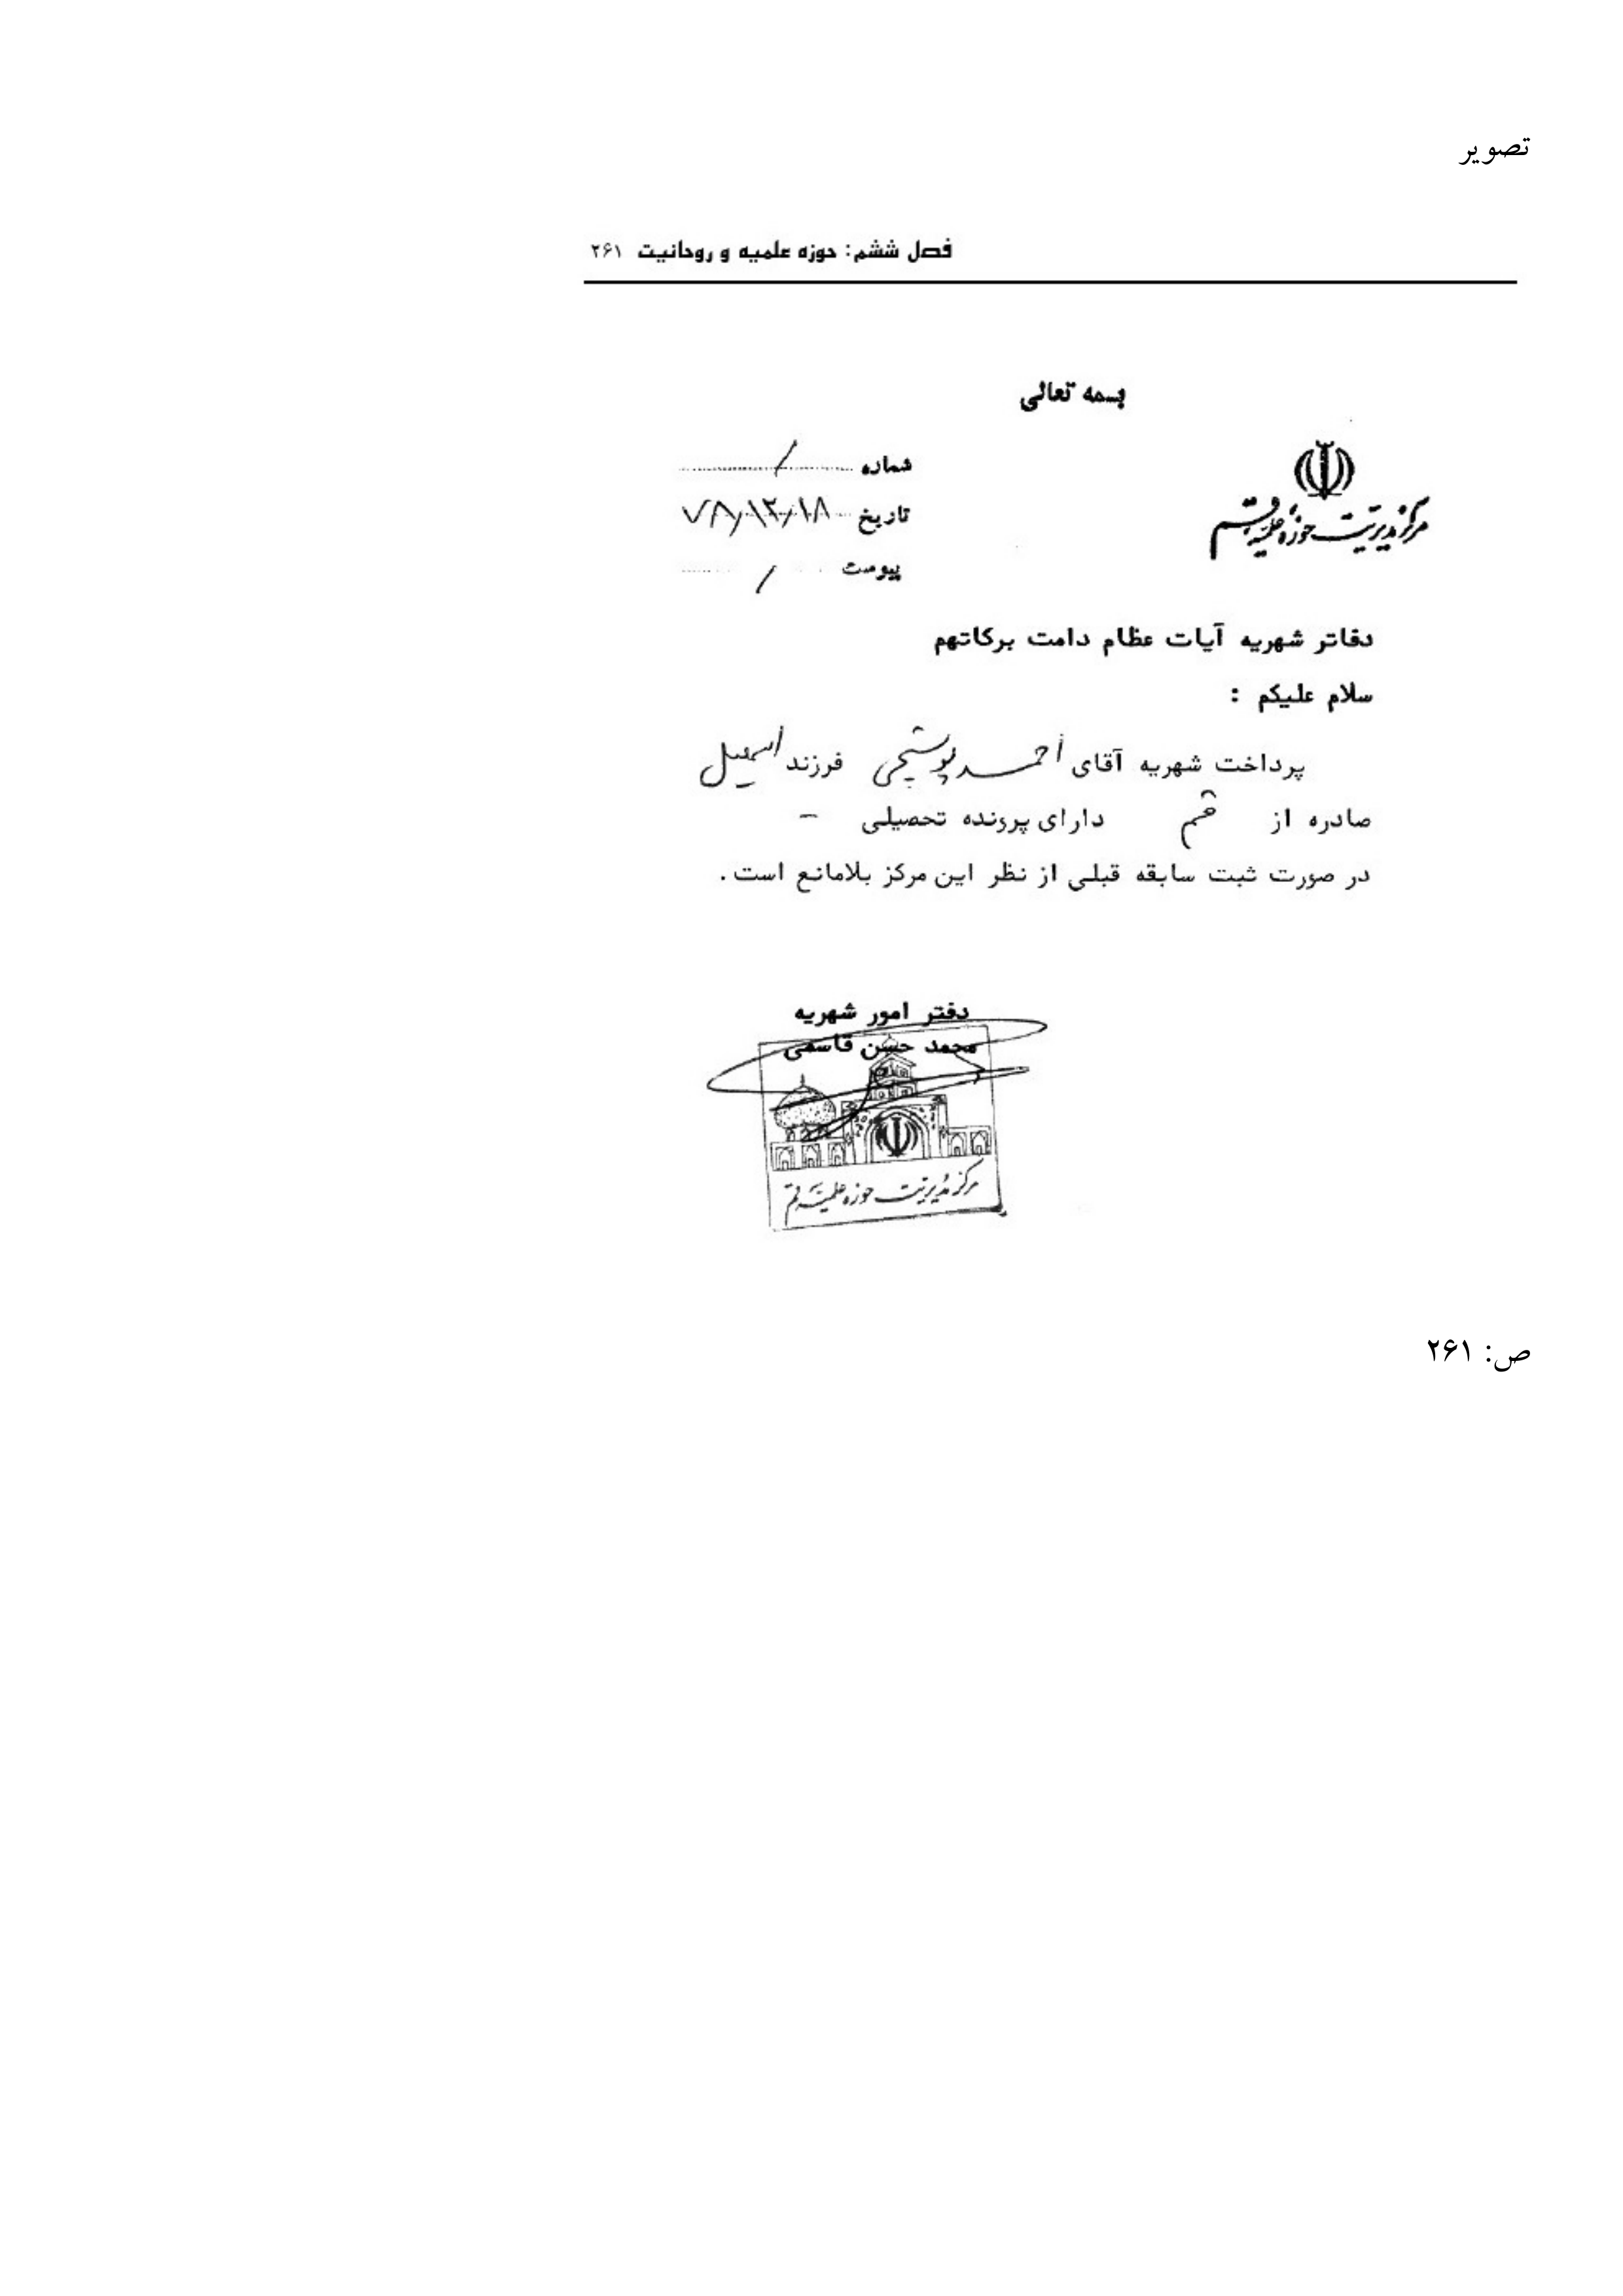 تصویر
فصل ششم: حوزه علمیه و روحانیت ۲۶۱
بسمه تعالی
مرکز مدیریت حوزه علمیه قم
شماره /
تاریخ ۷۸/۱۲/۱۸
پیوست /
دفاتر شهریه آیات عظام دامت برکاتهم
سلام علیکم :
پرداخت شهریه آقای احمد پوستچی فرزند اسمعیل
صادره از قم دارای پرونده تحصیلی -
در صورت ثبت سابقه قبلی از نظر این مرکز بلامانع است.
دفتر امور شهریه
محمد حسن قاسمی
مرکز مدیریت حوزه علمیه قم
ص: ۲۶۱